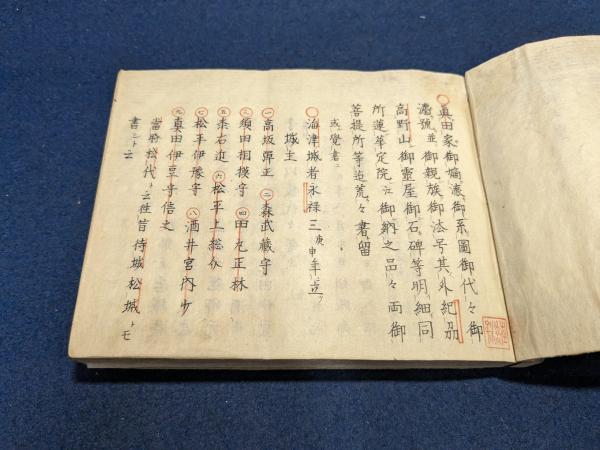 真田家御嫡流御系圖御代々御
御親族御法号其外紀刕
高野山御霊屋御石碑等明細同
所蓮華定院江御納之品々両御
菩提所等迄荒々書留
或覚書ニ
海津城者永禄三庚申年
城主
一 高坂弾正 二 森武蔵守
三 須田相模守 四 田丸
五 森右近 六 松平上総介
七 松平伊豫守 八 酒井宮内少
九 真田伊豆守信之
當時松代ト云往昔待城松城トモ
書シト云